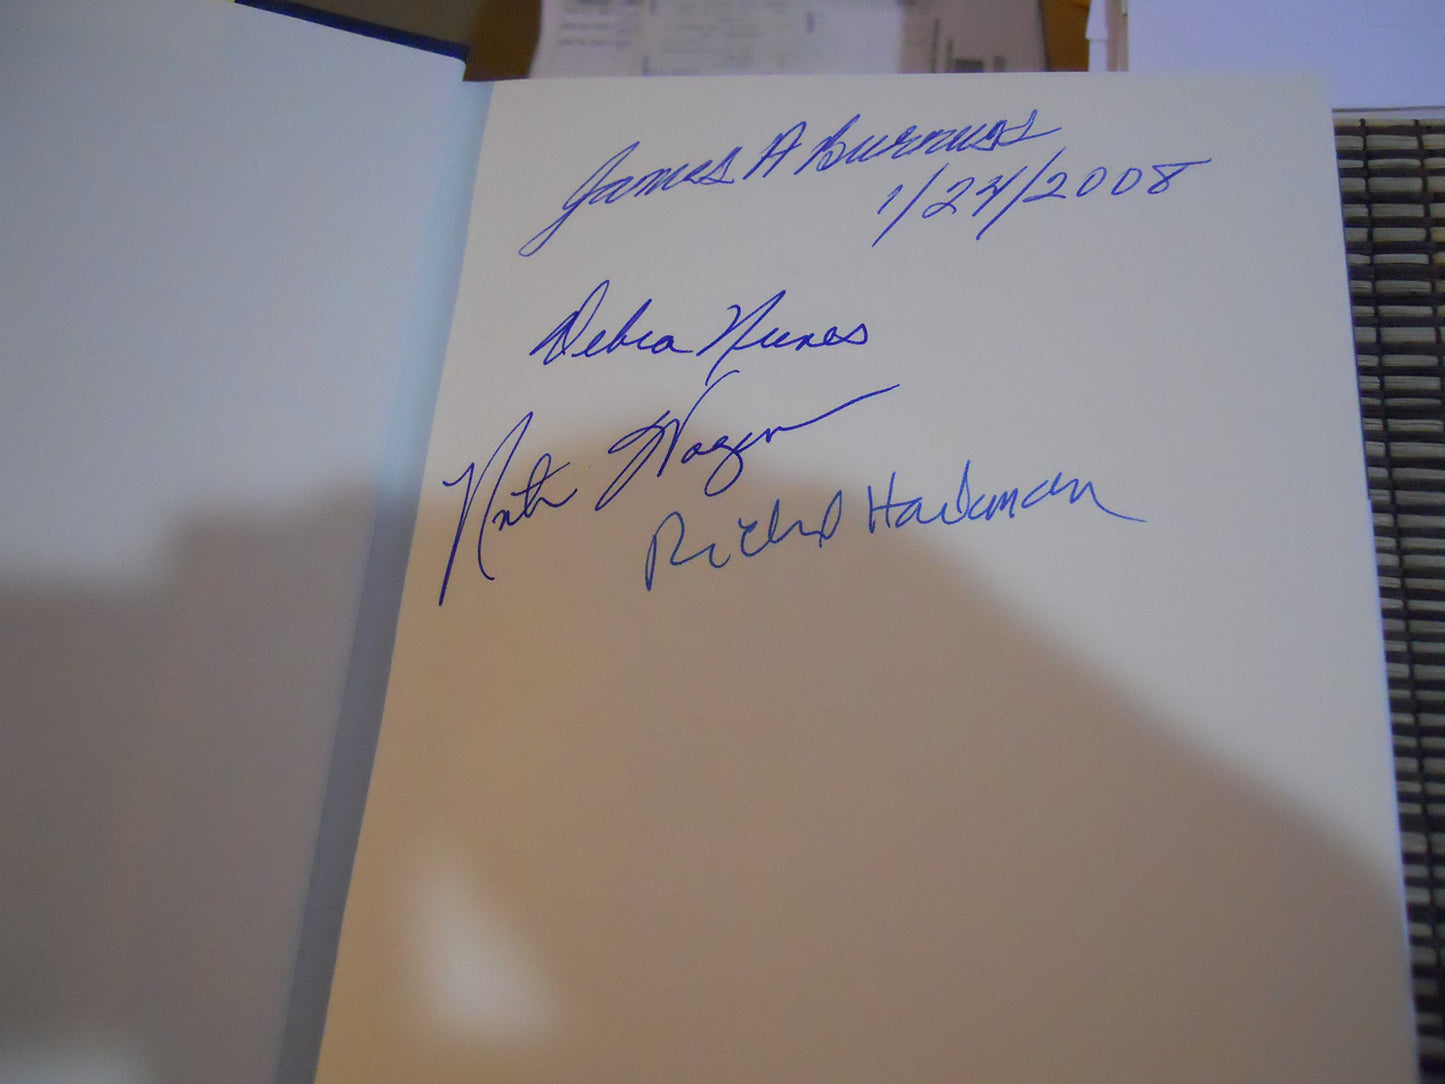 James A Burruss
1/24/2008
Debra Nunes
Wagen
Richard Hackman